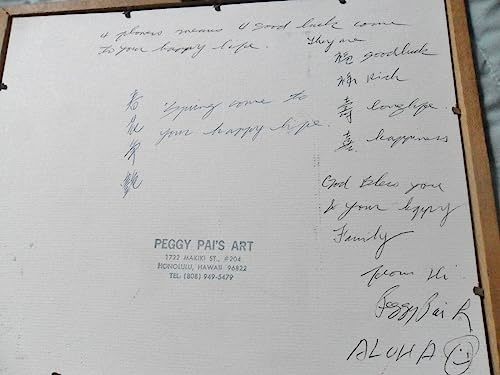 4 flowers means 4 good luck come
to your happy life. They are
福 goodluck
禄 Rich
壽 longlife.
喜 happiness
春
Spring come to
your happy life.
God Bless you
& your happy
Family
from Hi
Peggy Pai
ALOHA
PEGGY PAI'S ART
1722 MAKIKI ST., #204
HONOLULU, HAWAII 96822
TEL. (808) 949-5479